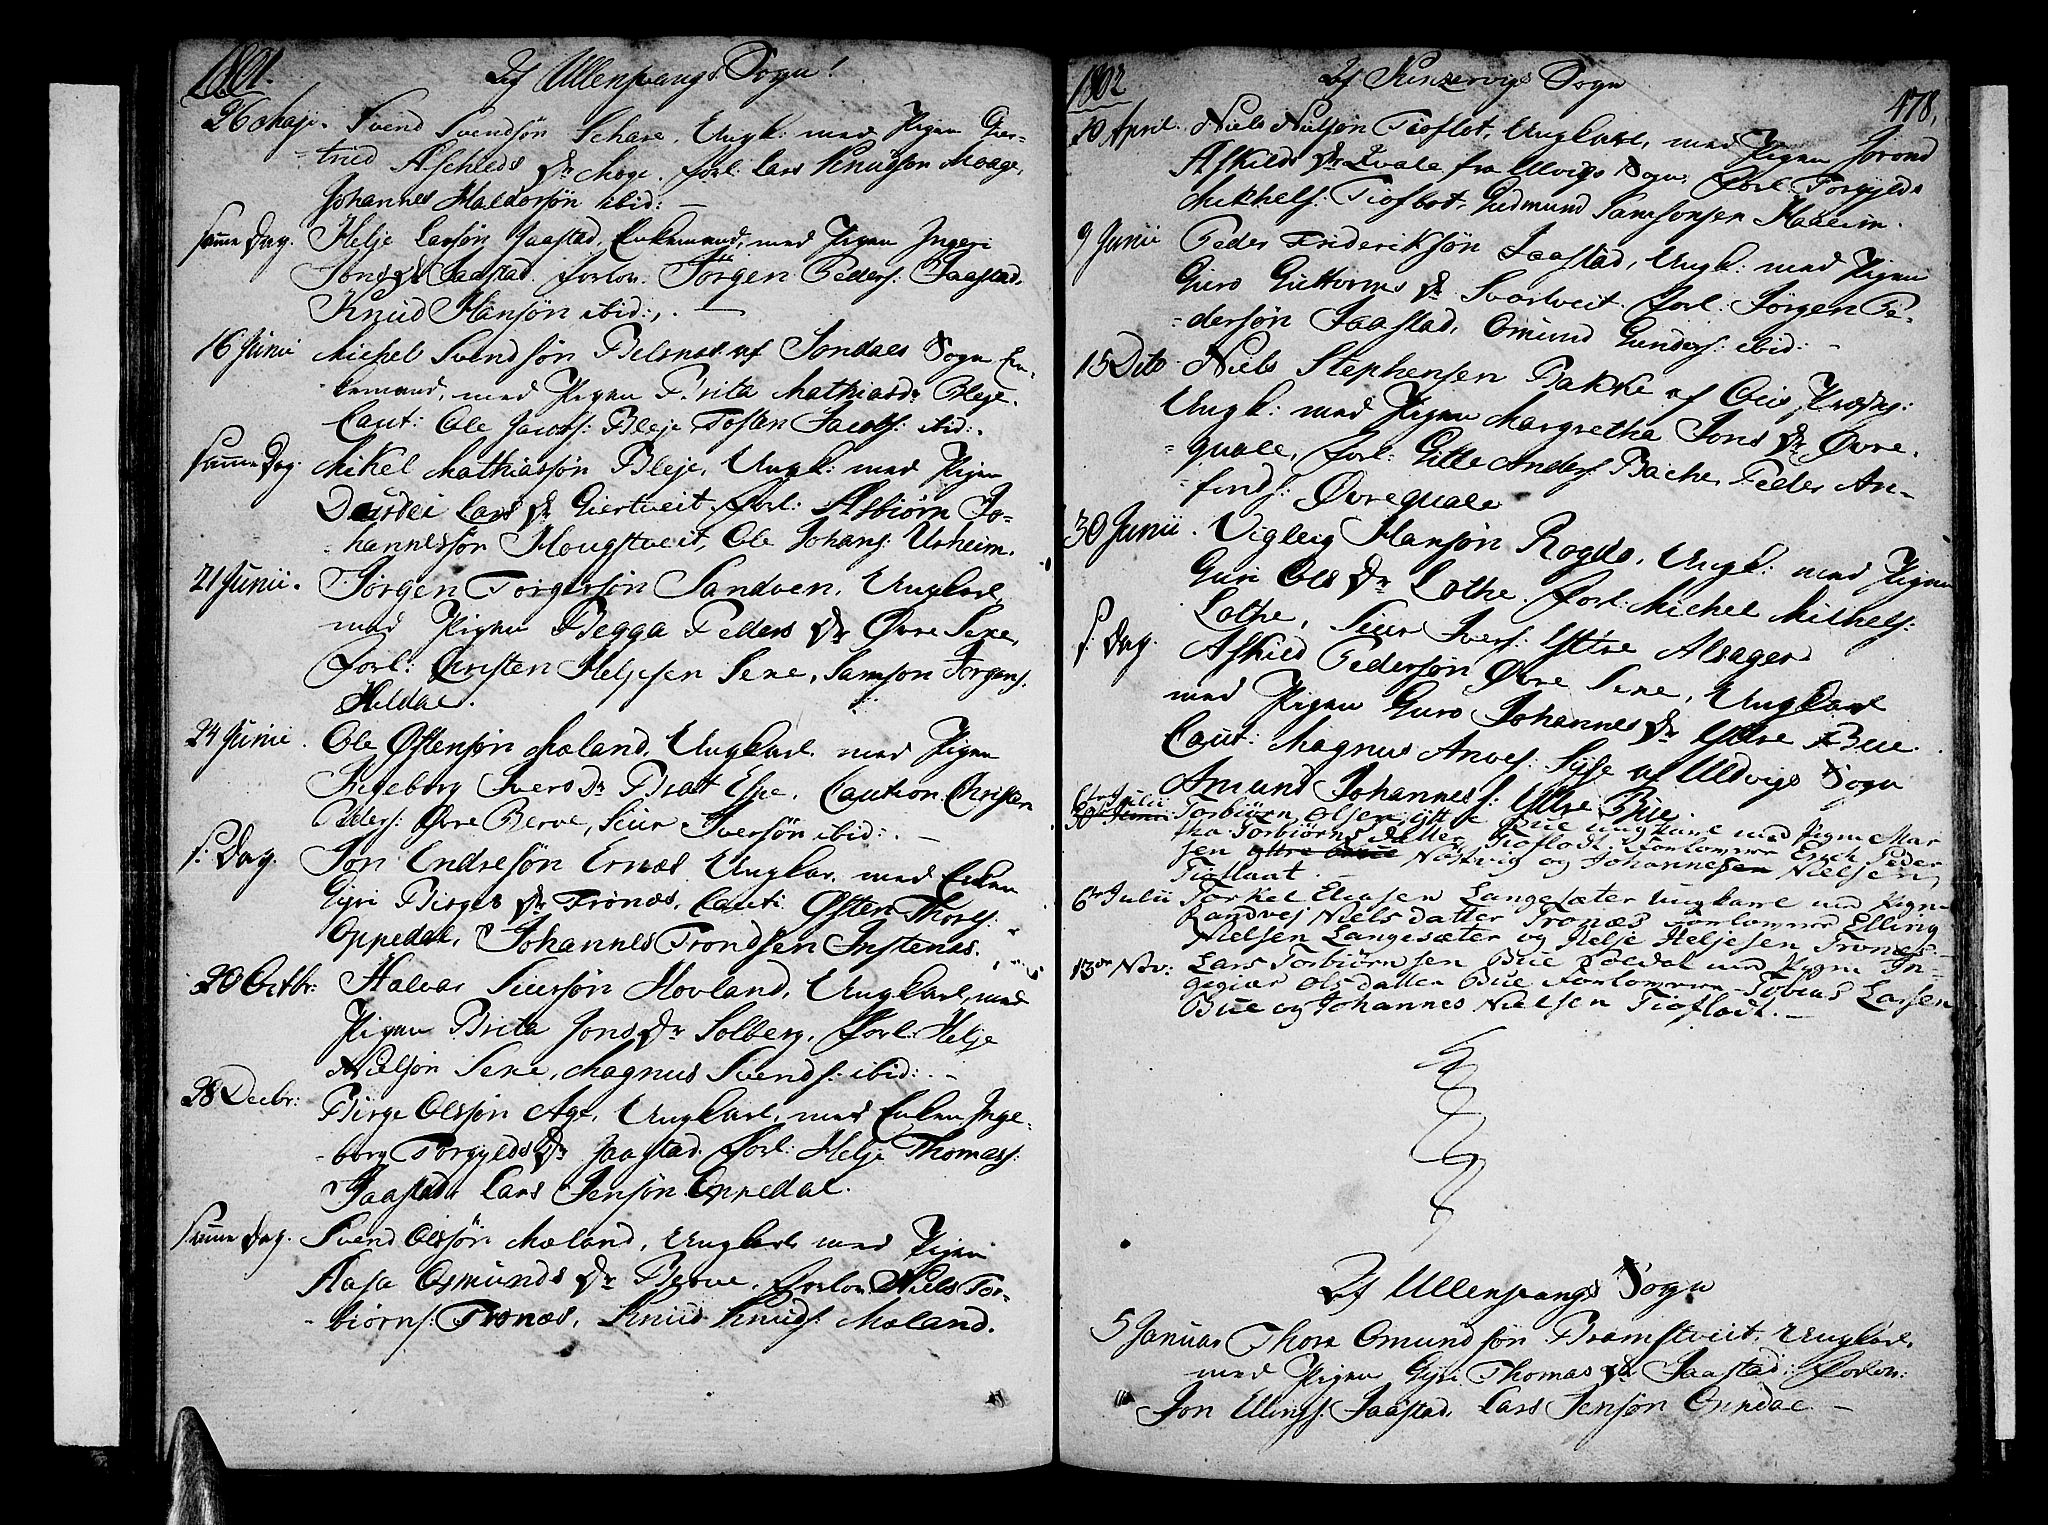 1801.
Af Ullensvangs Sogn!
26 Maji. Svend Svendsøn Schare, Ungk: med Pigen Gier-
-trud Aschilds Dr Moge. forl: Lars Knudsøn Maage,
Johannes Haldorsøn ibid: –
Samme Dag. Helje Larsøn Jaastad, Enkemand, med Pigen Ingeri
Jons dr Jaastad forlov: Jørgen Peders: Jaastad,
Knud Hansøn ibid:, . –
16 Junii Michel Svendsøn Belsnes af Jondals Sogn En-
kemand, med Pigen Brita Mathiasdr Bleje.
Caut: Ole Jacobs: Bleje Tosten Jacobs: ibid:.
Samme Dag. Mikel Mathiassøn Bleje, Ungk: med Pigen
Lars Dr Giertveit forl: Asbiørn Jo-
-hannessøn Hougstveit, Ole Johans: Urheim.
21 Junii. Jørgen Torgersøn Sandven, Ungkarl,
med Pigen Begga Peders Dr Øvre Sexe,
forl: Christen Heljesen Sexe, Samson Jørgens:
Hildal.
24 Junii. Ole Østensøn Mæland, Ungkarl med Pigen
Ingeborg Ivers Dr Bratt Espe, Caution Christen
Peders: Øvre Berve, Siur Iversøn ibid: . –
s: Dag. Jon Endresøn Ernæs, Ungkar, med Enken
Gyri Birges Dr Tronæs, Caut: Østen Thors:
Oppedal, & Johannes Trondsen Instenæs.
20 Octbr: Halvar Siursøn Hovland, Ungkarl, med
Pigen Brita Jons Dr Solberg, forl: Helje
Nielsøn Sexe, Magnus Svends: ibid: . –
28 Decbr: Birge Olssøn Age, Ungkarl, med Enken Inge-
-borg Torgylds Dr Jaastad forl: Helje Thomass:
Jaastad, Lars Jensøn Oppedal.
Samme Dag. Svend Olssøn Mæland, Ungkarl med Pigen
Aasa Osmunds Dr Berve, forlov: Niels Tor-
-biørns: Tronæs, Knud Knuds: Mæland.
1802
Af Kinzervigs Sogn
478,
20 April. Niels Nilsøn Tioflot, Ungkarl, med Pigen Jorond
Askilds Dr Qvale fra Ulvigs Sogn, forl: Torgylds
Mikkels: Tioflot, Gudmund Samsonsen Haaeim.
9 Junii Peder Frideriksøn Jaastad, Ungk: med Pigen
Guro Guttorms Dr Svartveit. forl: Jørgen Pe-
-dersøn Jaastad, Omund Gunders: ibid: –
15 Dito Niels Stephensen Bakke af Præstg:
Ungk: med Pigen Margretha Jons Dr Øvre-
-quale, forl: Gitle Anders: Bache, Peder An-
-finds: Øvrequale
30 Junii. Vigleig Hansøn Rogde, Ungk: med Pigen
Guri Ols Dr Lothe. forl: Michel Mikkels:
Lothe, Siur Ivers: Yttre Alsager
s: Dag. Askild Pedersøn Øvre Sexe, Ungkarl
med Pigen Guro Johannes Dr Yttre Bue.
Caut: Magnus Anves: Syse af Uldvigs Sogn
Amund Johannes s: Yttre Bue.
Julii Torbiørn Olsen ytt e Bue ungkarl med Pigen Mar
tha Torbiørns datter Tioflodt. Forlovere Erich Peder
sen yttre Naavig og Johannesen Nielsen
Tioflaat.
6te Julii Torkel Elvesen Langesæter Ungkarl med Pigen
Randvej Niels datter Tronæs Forlovere Elling
Nielsen Langesæter og Helje Heljesen Tronæs.
13de Nov: Lars Torbiørnsen Bue med Pigen In-
gegiær Ols datter Bue Forlovere Tobias Larsen
Bue og Johannes Nielsen Tioflodt. –
Af Ullensvangs Sogn
5 Januar Thore Omundsøn Bramstveit, Ungkarl,
med Pigen Gyri Thomas dr Jaastad: forlov:
Jon Ellings: Jaastad, Lars Jensøn Oppedal –